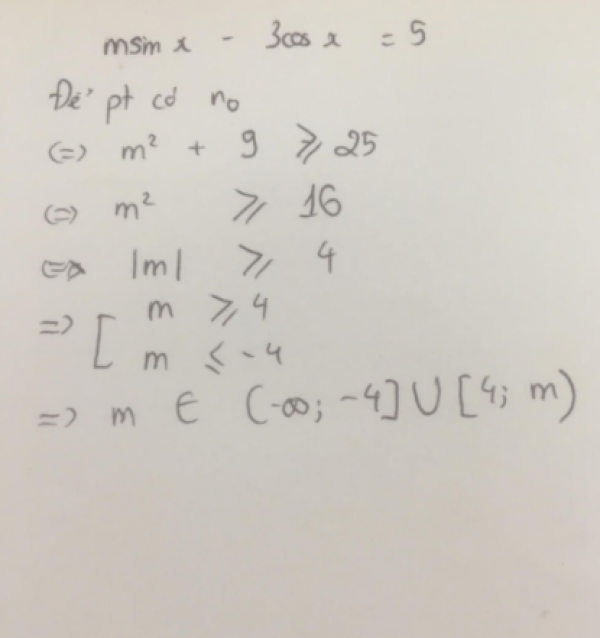 msin x - 3cos x = 5
Để pt có n₀
(=) m² + 9 ⩾ 25
(=) m² ⩾ 16
(=) |m| ⩾ 4
=> [ m ⩾ 4
m ⩽ -4
=> m ∈ (-∞; -4] ∪ [4; m)